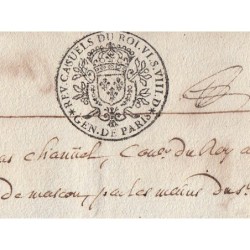 ★ REV. CASUELS DU ROI. VI. S. VIII. D.
GEN. DE PARIS
chañuel, Con.er du Roy a
de mascon, par les mains du S.r